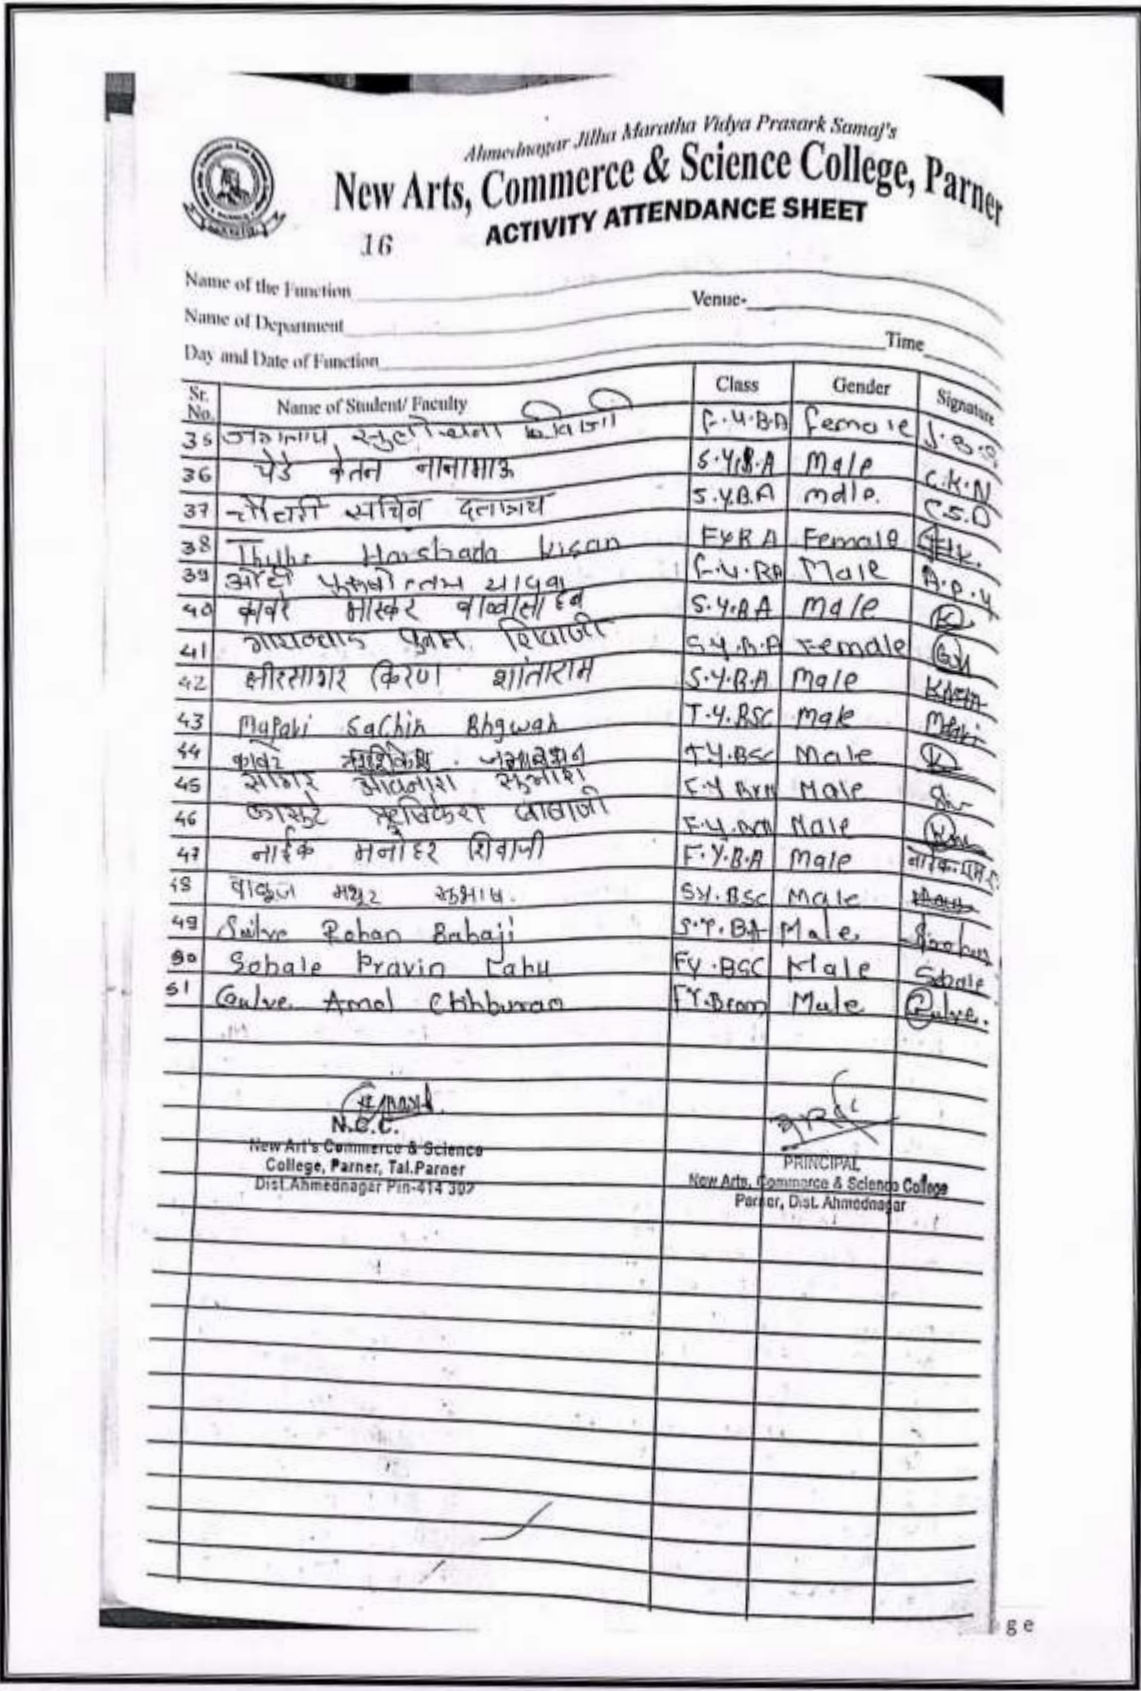 Ahmednagar Jilha Maratha Vidya Prasark Samaj's
New Arts, Commerce & Science College, Parner
ACTIVITY ATTENDANCE SHEET
16
Name of the Function
Venue-
Name of Department
Time
Day and Date of Function
Sr. No. Name of Student/ Faculty Class Gender Signature
35 F.Y.B.A Female
36 केतन नानाभाऊ S.Y.B.A Male C.K.N
37 चौधरी सचिन दत्तात्रय S.Y.B.A male. C.S.D
38 Thube Harshada Kisan F.Y.B.A Female
39 औटी पुरुषोत्तम यादव F.Y.BA Male A.P.Y
40 कावरे भास्कर S.Y.BA male K
41 गायकवाड पुनम शिवाजी S.Y.B.A Female
42 क्षीरसागर किरण शांताराम S.Y.B.A Male
43 Mapari Sachin Bhgwan T.Y.BSC male
44 कावरे T.Y.BSC Male
45 सुभाश F.Y Male
46 बाबाजी F.Y. Male
47 नाईक मनोहर शिवाजी F.Y.B.A Male
48 वाळुंज मयुर सुभाष. SY.BSC Male
49 Rohan Babaji S.Y.BA Male
50 Sobale Pravin Lahu FY.BSC Male Sobale
51 Gulve Amol Chhburao F.Y.Bcom Male Gulve.
N.C.C.
New Art's Commerce & Science
College, Parner, Tal.Parner
Dist.Ahmednagar Pin-414 302
PRINCIPAL
New Arts, Commerce & Science College
Parner, Dist. Ahmednagar
g e